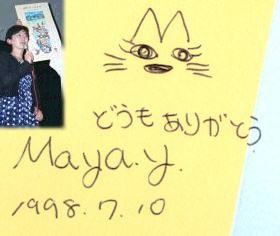 どうもありがとう
Maya.y.
1998.7.10